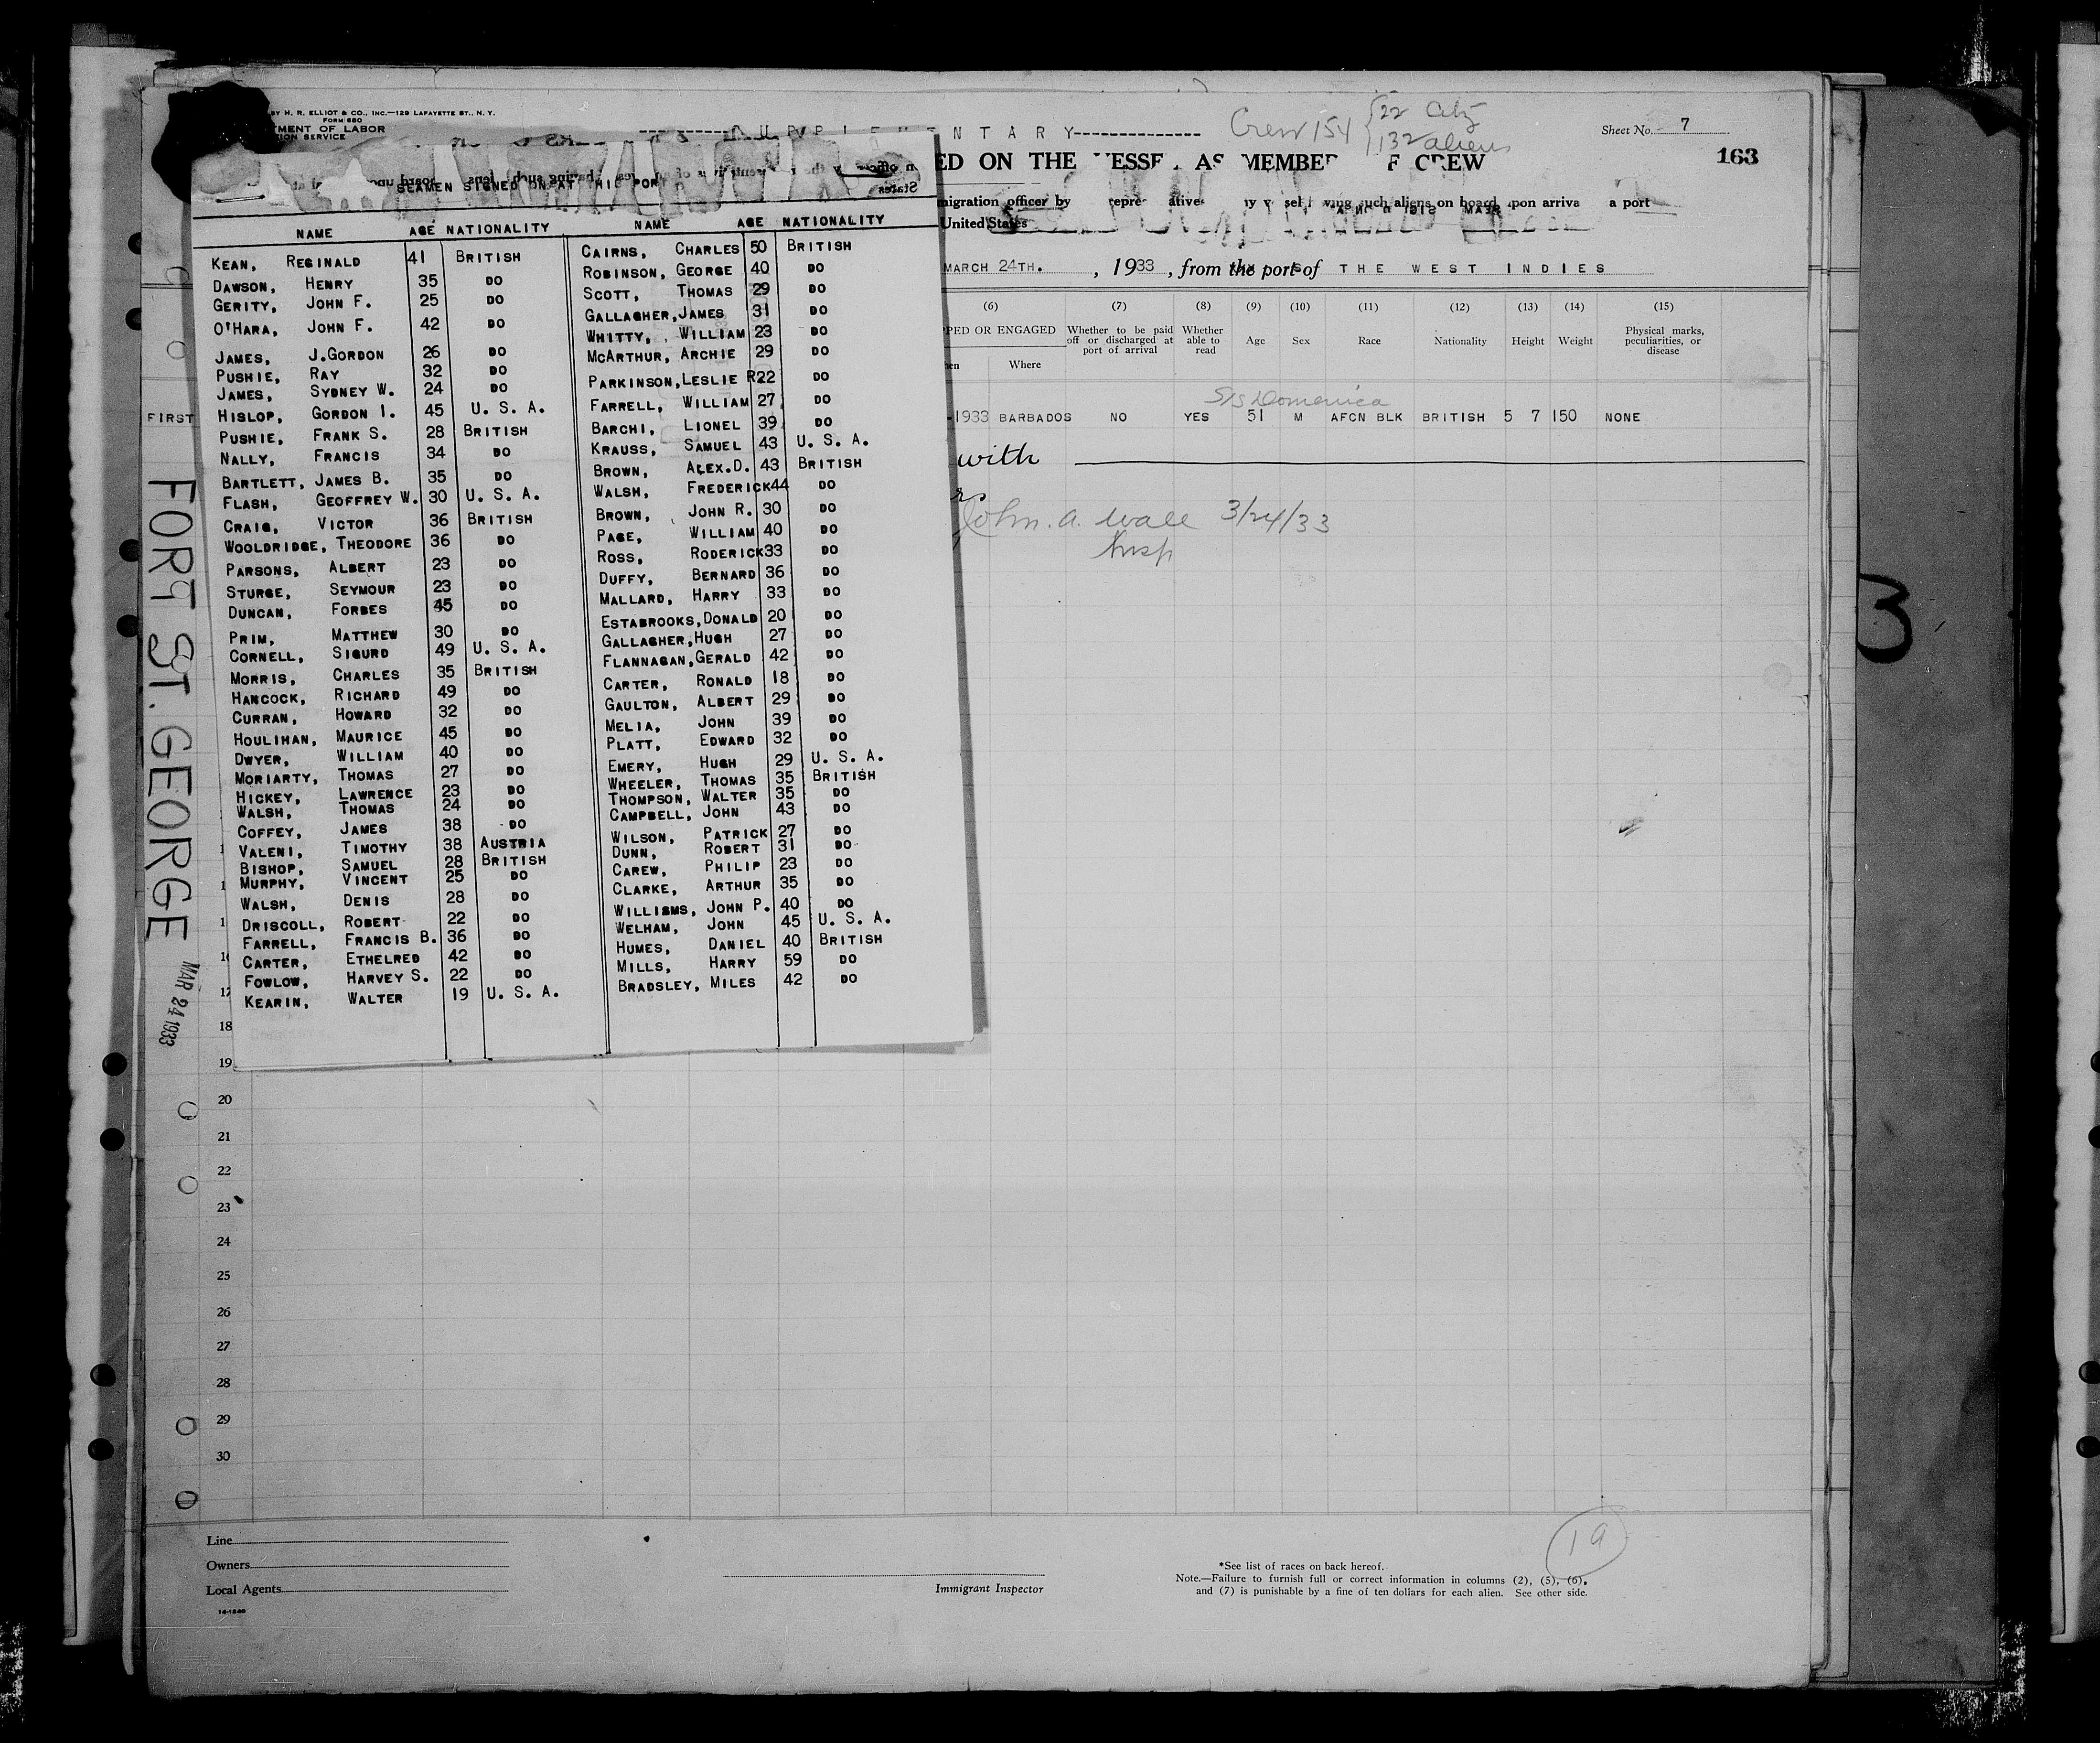 BY H. R. ELLIOT & CO., INC.—129 LAFAYETTE ST., N. Y.
FORM 680
MENT OF LABOR
TION SERVICE
NTARY--------------
Crew 154 {22 City
132 aliens
Sheet No. 7
163
ED ON THE VESSE AS MEMBER F CREW
migration officer by repre ative such aliens on board upon arriva a port
United States
MARCH 24TH. , 1933 , from the port of THE WEST INDIES
SEAMEN SIGNED ON AT THIS PORT
NAME AGE NATIONALITY NAME AGE NATIONALITY
KEAN, REGINALD 41 BRITISH CAIRNS, CHARLES 50 BRITISH
DAWSON, HENRY 35 DO ROBINSON, GEORGE 40 DO
GERITY, JOHN F. 25 DO SCOTT, THOMAS 29 DO
O'HARA, JOHN F. 42 DO GALLAGHER, JAMES 31 DO
WHITTY, WILLIAM 23 DO
JAMES, J.GORDON 26 DO McARTHUR, ARCHIE 29 DO
PUSHIE, RAY 32 DO PARKINSON, LESLIE R22 DO
JAMES, SYDNEY W. 24 DO FARRELL, WILLIAM 27 DO
HISLOP, GORDON I. 45 U. S. A. BARCHI, LIONEL 39 DO
PUSHIE, FRANK S. 28 BRITISH KRAUSS, SAMUEL 43 U. S. A.
NALLY, FRANCIS 34 DO BROWN, ALEX.D. 43 BRITISH
BARTLETT, JAMES B. 35 DO WALSH, FREDERICK44 DO
FLASH, GEOFFREY W. 30 U. S. A. BROWN, JOHN R. 30 DO
CRAIG, VICTOR 36 BRITISH PAGE, WILLIAM 40 DO
WOOLDRIDGE, THEODORE 36 DO ROSS, RODERICK33 DO
PARSONS, ALBERT 23 DO DUFFY, BERNARD 36 DO
STURGE, SEYMOUR 23 DO MALLARD, HARRY 33 DO
DUNCAN, FORBES 45 DO ESTABROOKS, DONALD 20 DO
PRIM, MATTHEW 30 DO GALLAGHER, HUGH 27 DO
CORNELL, SIGURD 49 U. S. A. FLANNAGAN, GERALD 42 DO
MORRIS, CHARLES 35 BRITISH CARTER, RONALD 18 DO
HANCOCK, RICHARD 49 DO GAULTON, ALBERT 29 DO
CURRAN, HOWARD 32 DO MELIA, JOHN 39 DO
HOULIHAN, MAURICE 45 DO PLATT, EDWARD 32 DO
DWYER, WILLIAM 40 DO EMERY, HUGH 29 U. S. A.
MORIARTY, THOMAS 27 DO WHEELER, THOMAS 35 BRITISH
HICKEY, LAWRENCE 23 DO THOMPSON, WALTER 35 DO
WALSH, THOMAS 24 DO CAMPBELL, JOHN 43 DO
COFFEY, JAMES 38 DO WILSON, PATRICK 27 DO
VALENI, TIMOTHY 38 AUSTRIA DUNN, ROBERT 31 DO
BISHOP, SAMUEL 28 BRITISH CAREW, PHILIP 23 DO
MURPHY, VINCENT 25 DO CLARKE, ARTHUR 35 DO
WALSH, DENIS 28 DO WILLIBMS, JOHN P. 40 DO
DRISCOLL, ROBERT 22 DO WELHAM, JOHN 45 U. S. A.
FARRELL, FRANCIS B. 36 DO HUMES, DANIEL 40 BRITISH
CARTER, ETHELRED 42 DO MILLS, HARRY 59 DO
FOWLOW, HARVEY S. 22 DO BRADSLEY, MILES 42 DO
KEARIN, WALTER 19 U. S. A.
(6) (7) (8) (9) (10) (11) (12) (13) (14) (15)
PED OR ENGAGED Whether to be paid off or discharged at port of arrival Whether able to read Age Sex Race Nationality Height Weight Physical marks, peculiarities, or disease
en Where
S/S Domenica
FIRST -1933 BARBADOS NO YES 51 M AFCN BLK BRITISH 5 7 150 NONE
with
John. A. Wall 3/24/33
Insp
FORT ST. GEORGE
MAR 24 1933
3
17
18
19
20
21
22
23
24
25
26
27
28
29
30
19
Line
Owners
Local Agents
Immigrant Inspector
*See list of races on back hereof.
Note.—Failure to furnish full or correct information in columns (2), (5), (6),
and (7) is punishable by a fine of ten dollars for each alien. See other side.
14-1240